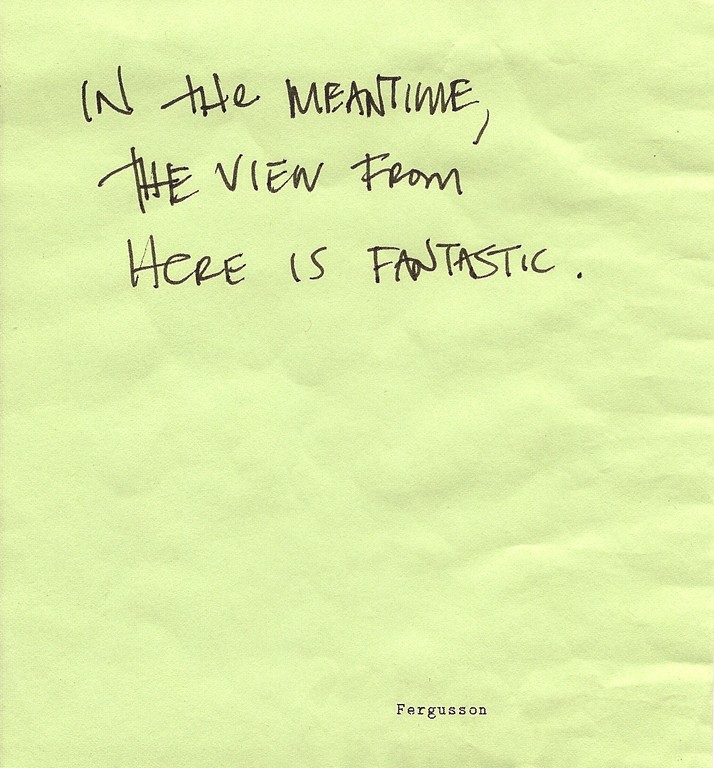 IN the MEANTIME,
THE VIEW FROM
HERE IS FANTASTIC.
Fergusson